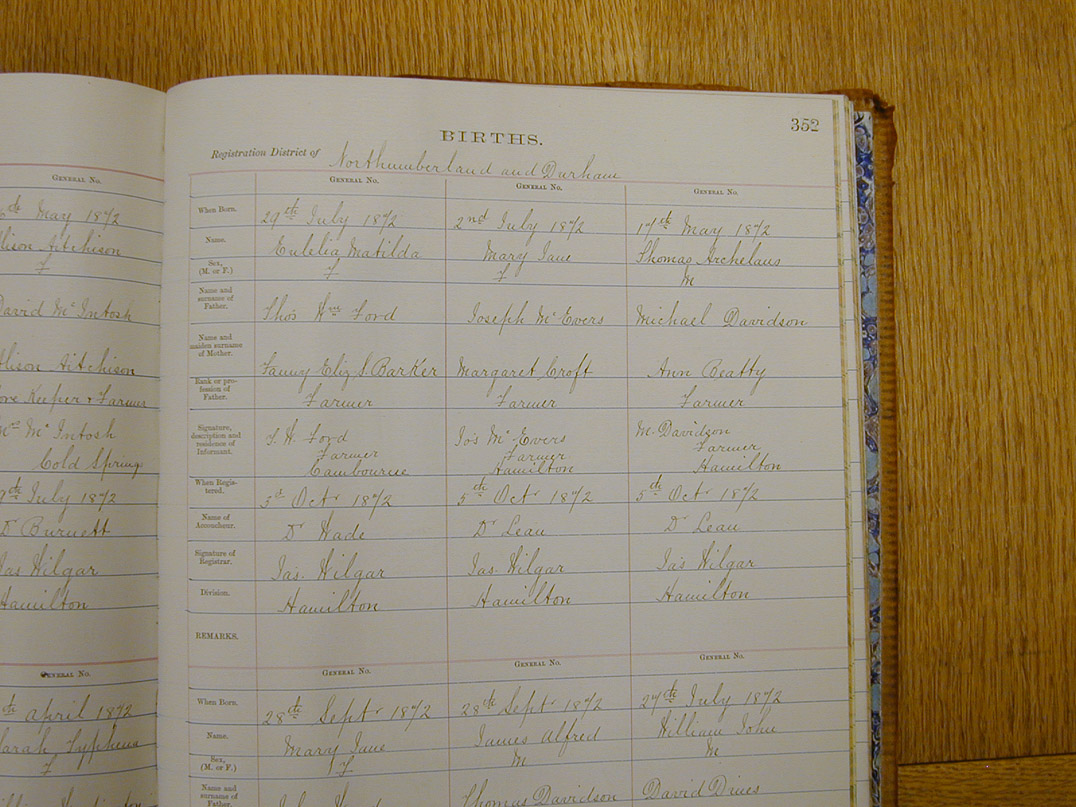 352
BIRTHS.
Registration District of Northumberland and Durham
GENERAL No.
May 1872
Aitchison
F
David Mc Intosh
Aitchison
Keeper & Farmer
Mc Intosh
Cold Springs
July 1872
Dr Burnett
Jas Wilgar
Hamilton
GENERAL No.
April 1872
Sarah
F
GENERAL No. GENERAL No. GENERAL No.
When Born. 29th July 1872 2nd July 1872 17th May 1872
Name. Matilda Mary Jane Thomas Archelaus
Sex, (M. or F.) F F M
Name and surname of Father. Thos Wm Ford Joseph Mc Evers Michael Davidson
Name and maiden surname of Mother. Fanny Eliz S. Barker Margaret Croft Ann Beatty
Rank or profession of Father. Farmer Farmer Farmer
Signature, description and residence of Informant. T. W. Ford Jos Mc Evers M. Davidson
Farmer Farmer Farmer
Cambourne Hamilton Hamilton
When Registered. Octr 1872 5th Octr 1872 5th Octr 1872
Name of Accoucheur. Dr Wade Dr Lean Dr Lean
Signature of Registrar. Jas. Wilgar Jas. Wilgar Jas Wilgar
Division. Hamilton Hamilton Hamilton
REMARKS.
GENERAL No. GENERAL No. GENERAL No.
When Born. 28th Septr 1872 28th Septr 1872 27th July 1872
Name. Mary Jane James Alfred William John
Sex, (M. or F.) F M M
Name and surname of Father. Thomas Davidson David